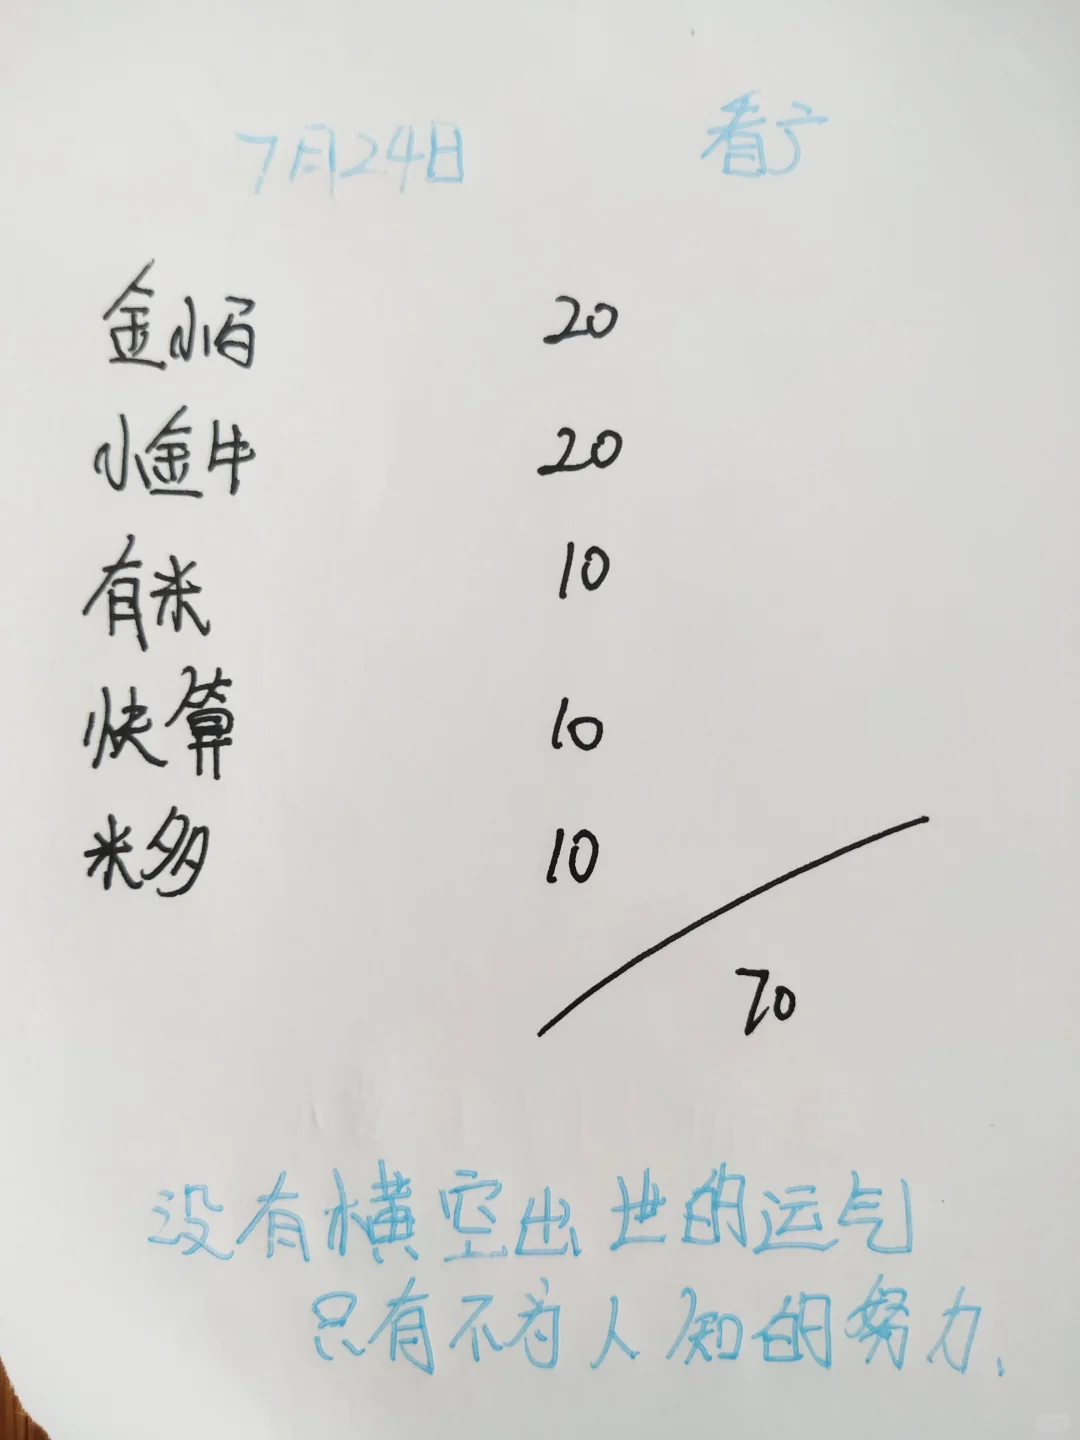 7月24日 看广
金小百 20
小金牛 20
有米 10
快算 10
米多 10
70
没有横空出世的运气
只有不为人知的努力、